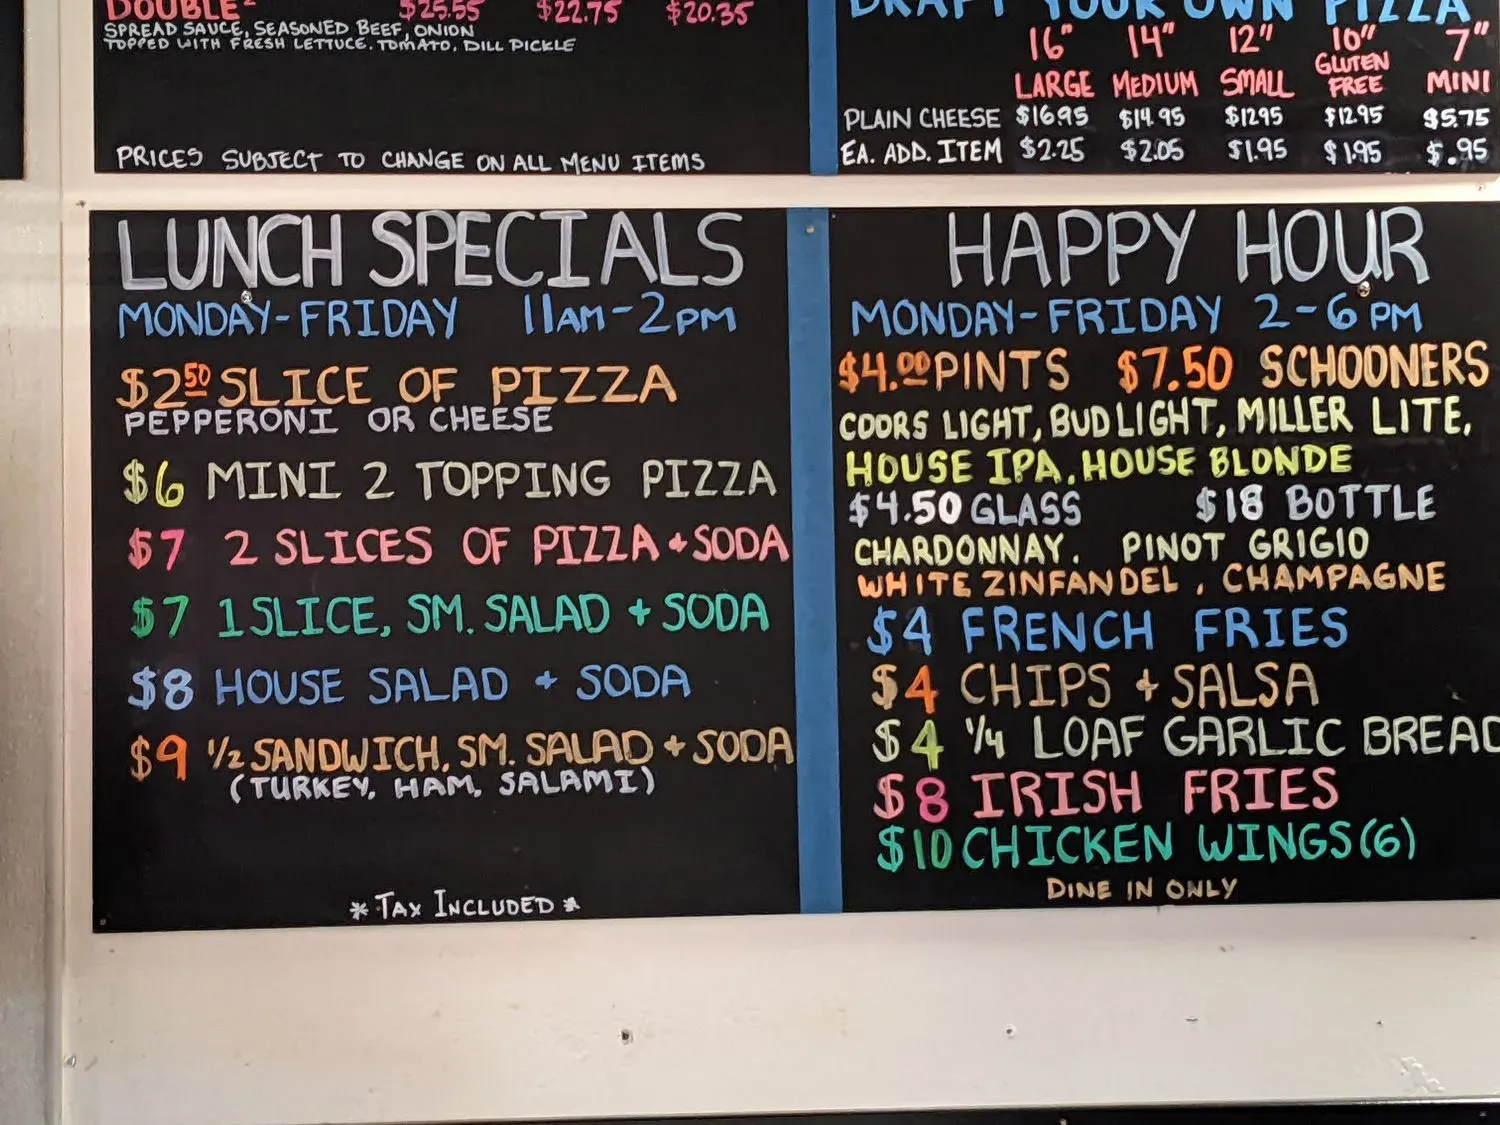 DOUBLE² $25.55 $22.75 $20.35
SPREAD SAUCE, SEASONED BEEF, ONION
TOPPED WITH FRESH LETTUCE, TOMATO, DILL PICKLE
PRICES SUBJECT TO CHANGE ON ALL MENU ITEMS
DRAFT YOUR OWN PIZZA
16" 14" 12" 10" 7"
LARGE MEDIUM SMALL GLUTEN FREE MINI
PLAIN CHEESE $16.95 $14.95 $12.95 $12.95 $5.75
EA. ADD. ITEM $2.25 $2.05 $1.95 $1.95 $.95
LUNCH SPECIALS
MONDAY-FRIDAY 11AM-2PM
$2.50 SLICE OF PIZZA
PEPPERONI OR CHEESE
$6 MINI 2 TOPPING PIZZA
$7 2 SLICES OF PIZZA + SODA
$7 1 SLICE, SM. SALAD + SODA
$8 HOUSE SALAD + SODA
$9 1/2 SANDWICH, SM. SALAD + SODA
(TURKEY, HAM, SALAMI)
* TAX INCLUDED *
HAPPY HOUR
MONDAY-FRIDAY 2-6 PM
$4.00 PINTS $7.50 SCHOONERS
COORS LIGHT, BUD LIGHT, MILLER LITE,
HOUSE IPA, HOUSE BLONDE
$4.50 GLASS $18 BOTTLE
CHARDONNAY, PINOT GRIGIO
WHITE ZINFANDEL, CHAMPAGNE
$4 FRENCH FRIES
$4 CHIPS + SALSA
$4 1/4 LOAF GARLIC BREAD
$8 IRISH FRIES
$10 CHICKEN WINGS (6)
DINE IN ONLY